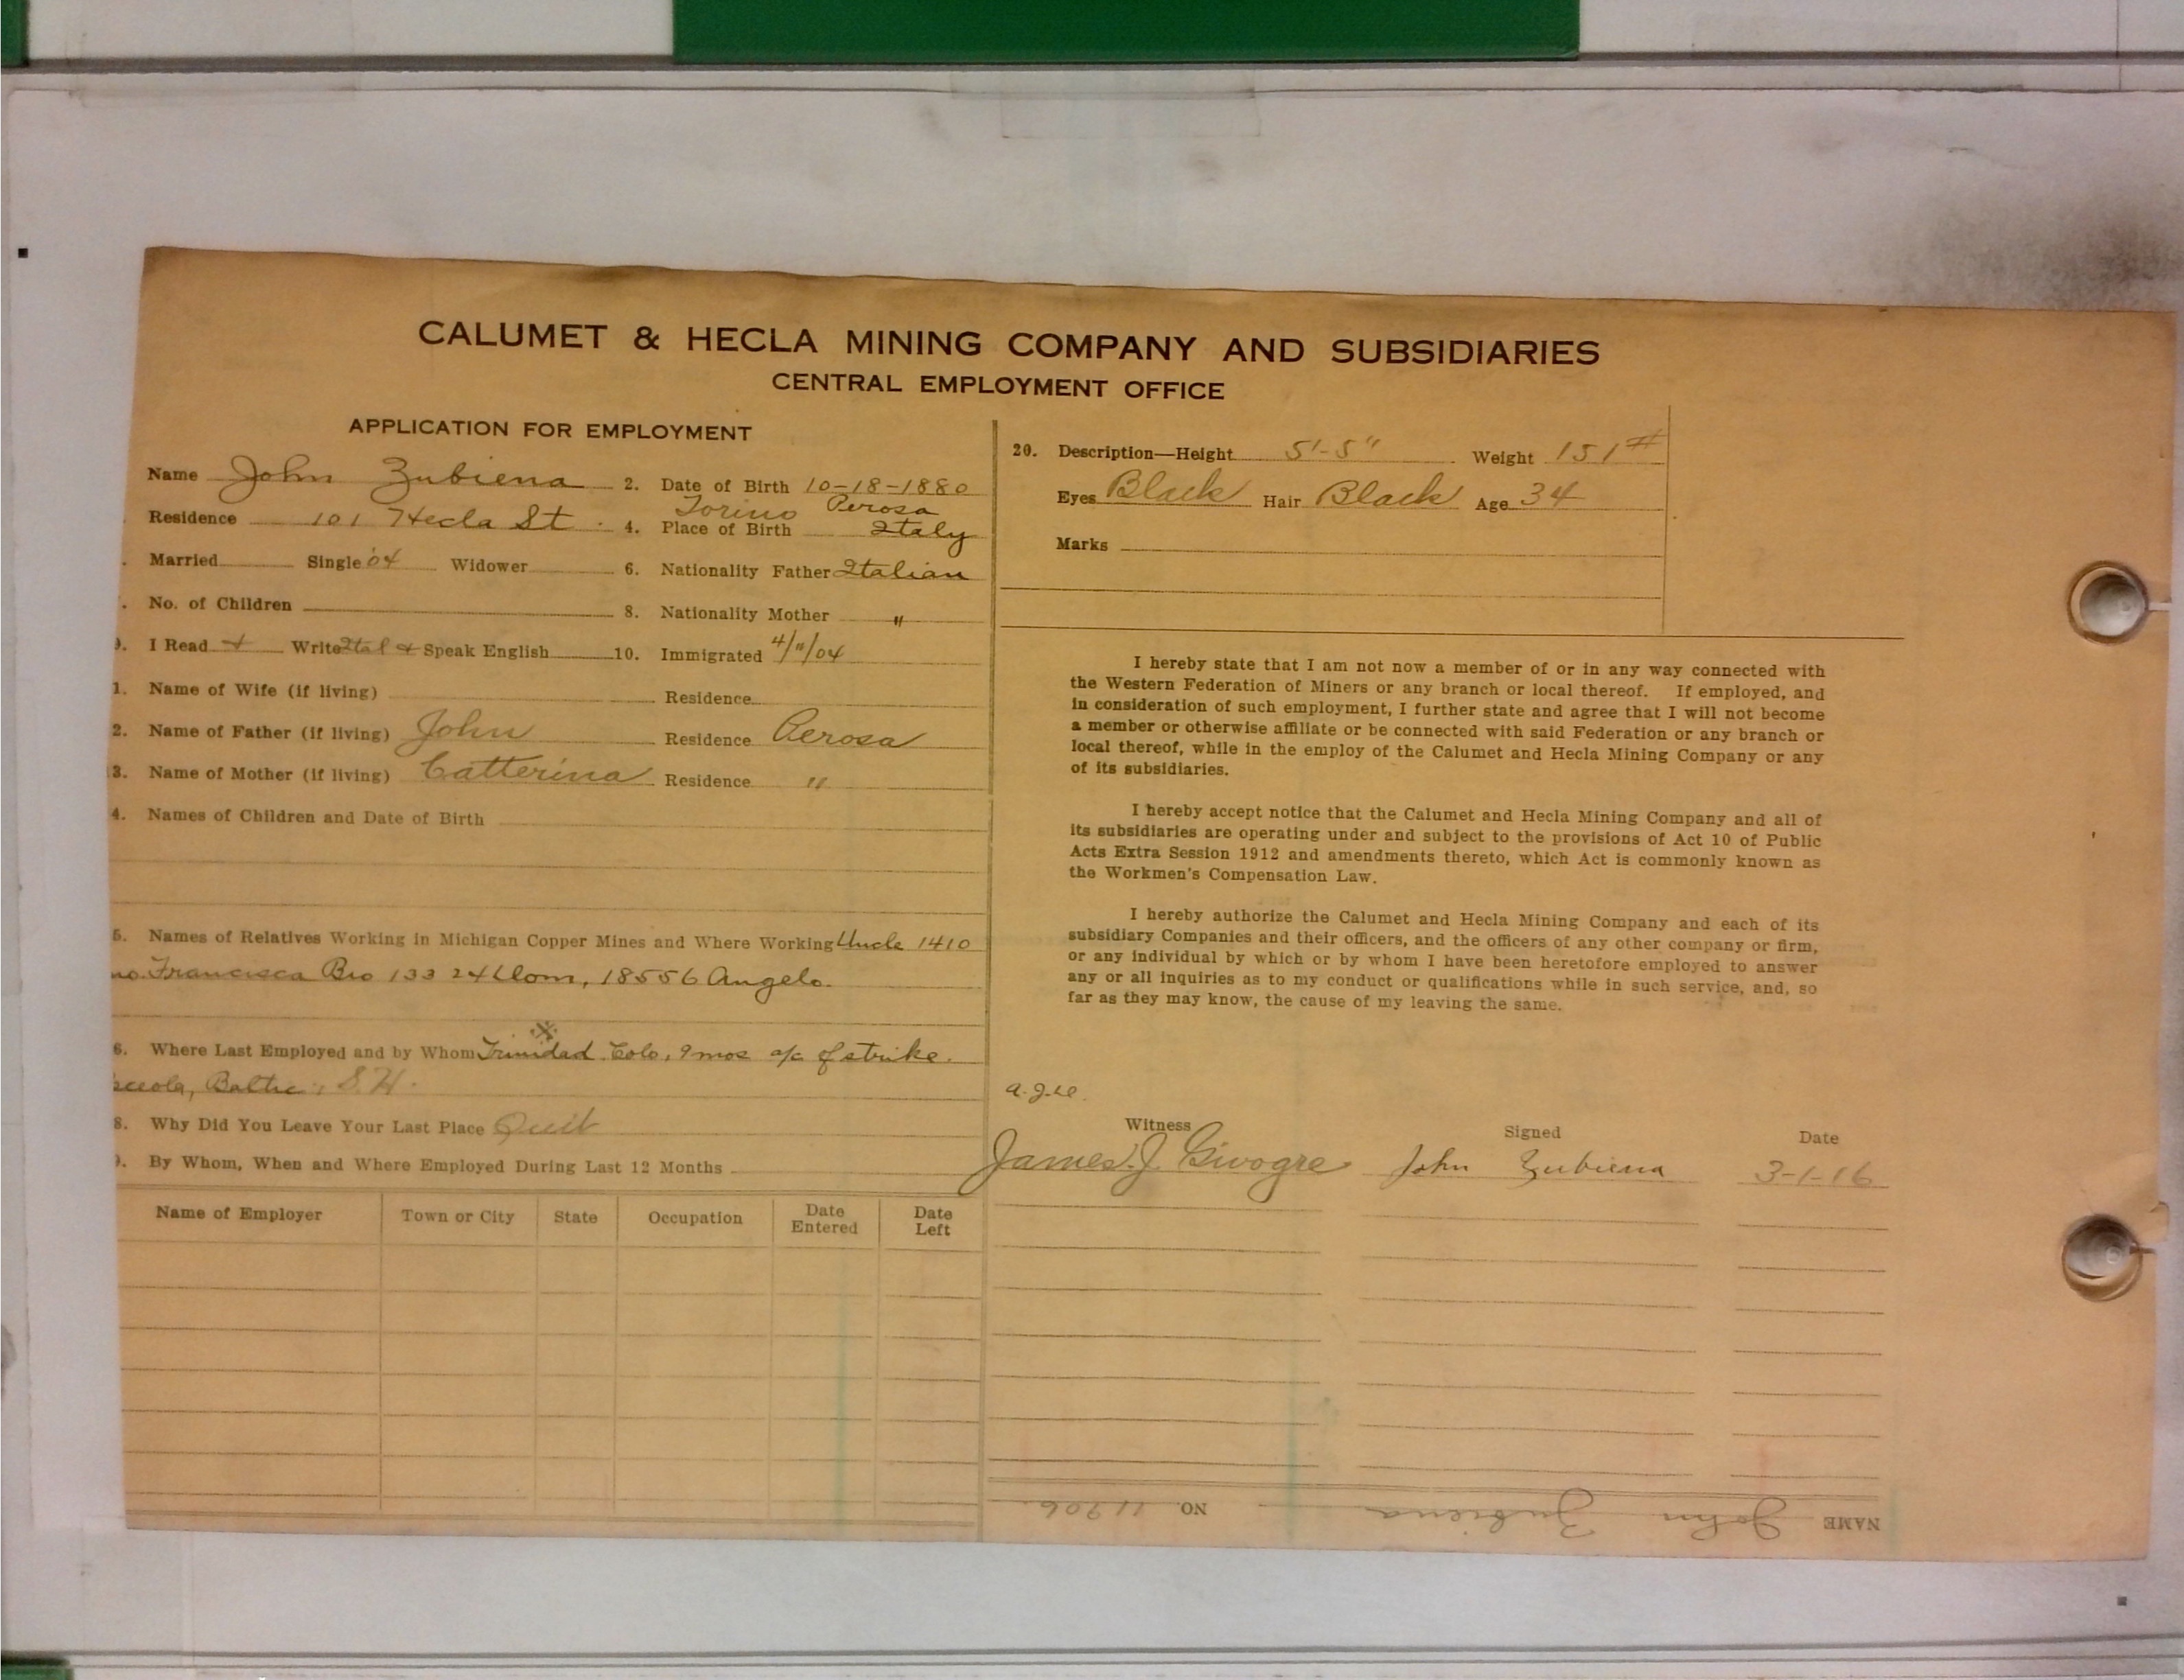 CALUMET & HECLA MINING COMPANY AND SUBSIDIARIES
CENTRAL EMPLOYMENT OFFICE
APPLICATION FOR EMPLOYMENT
Name John Zubiena 2. Date of Birth 10-18-1880
Torino Perosa
Residence 101 Hecla St. 4. Place of Birth Italy
Married Single 04 Widower 6. Nationality Father Italian
No. of Children 8. Nationality Mother "
9. I Read + Write Ital + Speak English 10. Immigrated 4/11/04
1. Name of Wife (if living) Residence
2. Name of Father (if living) John Residence Perosa
3. Name of Mother (if living) Catterina Residence "
4. Names of Children and Date of Birth
5. Names of Relatives Working in Michigan Copper Mines and Where Working Uncle 1410
no. Francisca Bro 133 24 18556 Angelo.
6. Where Last Employed and by Whom Trinidad Colo, 9 mos a/c of strike.
ceola, Baltic, S.H.
8. Why Did You Leave Your Last Place Quit
9. By Whom, When and Where Employed During Last 12 Months
Name of Employer Town or City State Occupation Date Entered Date Left
20. Description—Height 5'-5" Weight 151#
Eyes Black Hair Black Age 34
Marks
I hereby state that I am not now a member of or in any way connected with
the Western Federation of Miners or any branch or local thereof. If employed, and
in consideration of such employment, I further state and agree that I will not become
a member or otherwise affiliate or be connected with said Federation or any branch or
local thereof, while in the employ of the Calumet and Hecla Mining Company or any
of its subsidiaries.
I hereby accept notice that the Calumet and Hecla Mining Company and all of
its subsidiaries are operating under and subject to the provisions of Act 10 of Public
Acts Extra Session 1912 and amendments thereto, which Act is commonly known as
the Workmen's Compensation Law.
I hereby authorize the Calumet and Hecla Mining Company and each of its
subsidiary Companies and their officers, and the officers of any other company or firm,
or any individual by which or by whom I have been heretofore employed to answer
any or all inquiries as to my conduct or qualifications while in such service, and, so
far as they may know, the cause of my leaving the same.
Witness Signed Date
James J. Givogre John Zubiena 3-1-16
NAME John Zubiena NO. 11906